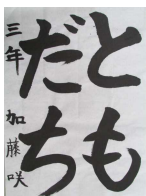 とも
だち
三年 加藤咲